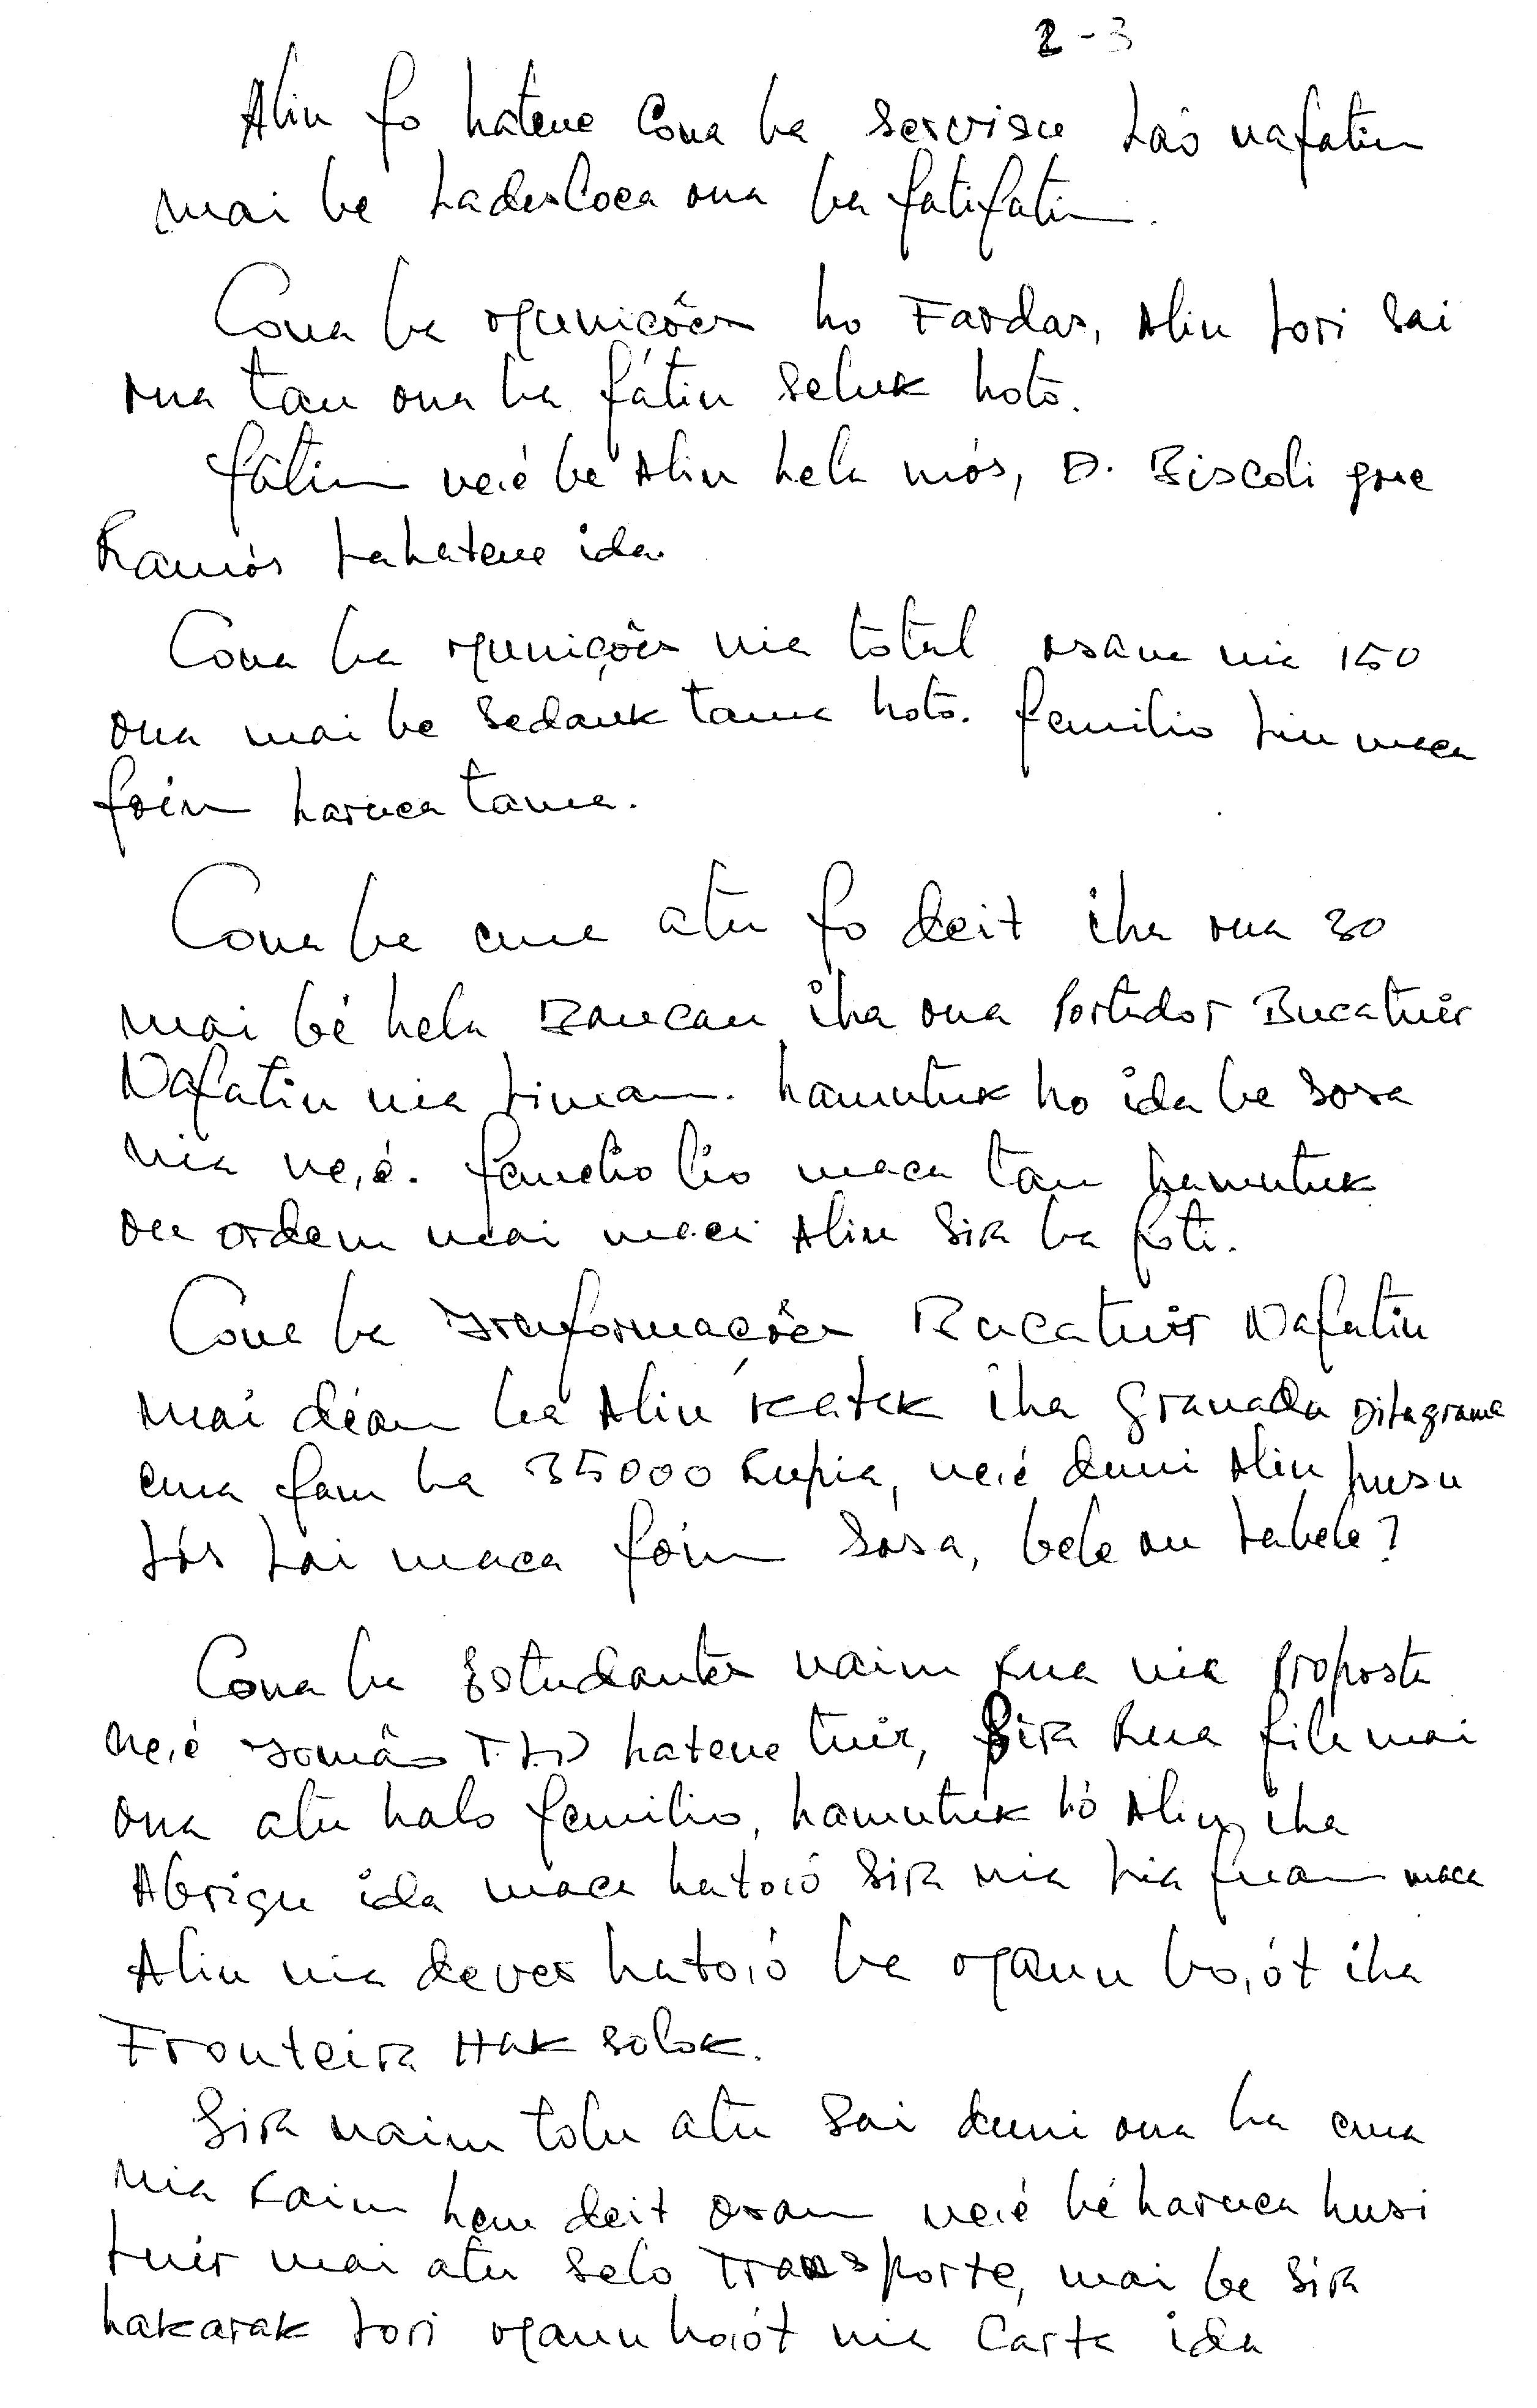 2-3
Alin fo hatene Cona ba servisu Lao nafatin
mai be Ladesloca ona ba fatifatin.
Cona ba Munições ho Fardas, Alin Lori sai
ona tau ona ba fátin seluk hotö.
fátin ne,é be Alin hela mós, D. Biscoli que
Ramós Lahatene ida.
Cona ba Munições nia total osan nia 150
ona mai be sedauk tama hotö. familio Lin maca
foin haruca tama.
Cona ba ema atu fo deit iha ona 30
mai bé hela Baucau iha ona Portador Bucatuir
Nafatin nia Liman. hamutuk ho ida be sosa
nia ne,é. fandio lio maca tau hamutuk
ou ordem mai maci Alin sira ba foti.
Cona ba Informações Bucatuir Nafatin
mai dean ba Alin katak iha Granada Ditagrama
ema fan ba 35000 Rupia, ne,é duni Alin husu
Los Lai maca foin sosa, bele ou Labele?
Cona ba Estudantes nain Rua nia proposta
ne,é Iomâs T.L.D hatene tuir, Sira Rua fila mai
ona atu halo familio, hamutuk hó Alin, iha
Abrigu ida maca hato,ó Sira nia Lia fuan maca
Alin nia dever hato,ó ba Maun bo,ót iha
Fronteira Hak solok.
Sira nain tolu atu sai duni ona ba ema
nia Rain hein deit osan ne,é bé haruca husi
tuir mai atu selo Transporte, mai be Sira
hakarak Lori Maun bo,ót nia Carta ida